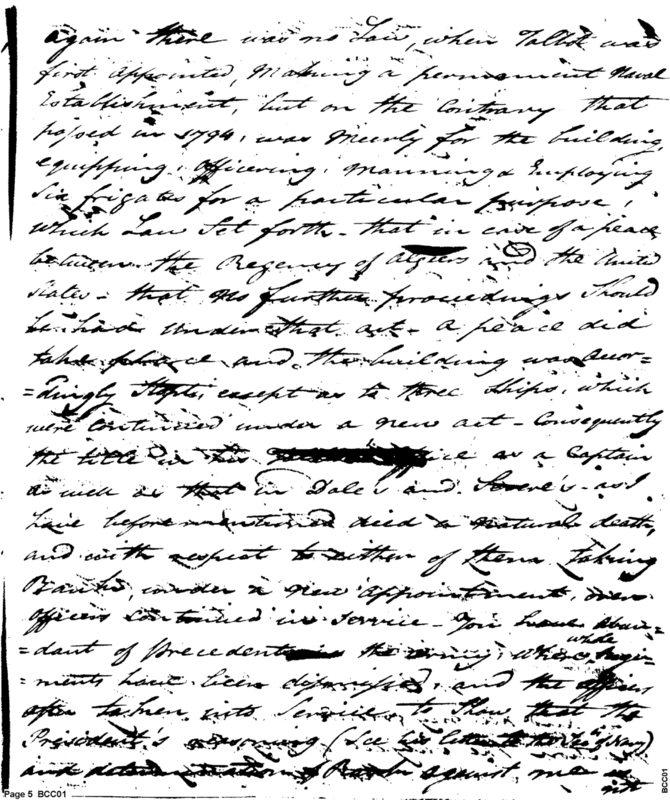 again there was no Law, when Talbot was
first appointed, Making a permanent Naval
Establishment, but on the Contrary that
passed in 1794, was Meerly for the building,
equipping, Officering, Manning & Employing
Six frigates for a particular purpose,
which Law Set forth - that in case of a peace
between the Regency of Algiers and the United
States - that no further proceedings Should
be had under that act - a peace did
take place and the building was accor=
=dingly Stopt, except as to three Ships, which
were Continued under a new act - Consequently
the title in his office as a Captain
as well as that in Dale's and Severe's - as I
have before mentioned died a natural death,
and with respect to either of them taking
Rank, under a new appointment, over
officers Continued in Service - You have abun=
=dant of Precedents in the army, where whole Regi=
=ments have been dismissed, and the officers
often taken into Service, to Show that the
President's reasoning (See his letter to the Secy of Navy)
and determination of Rank against me is
not
Page 5 BCC01
BCC01